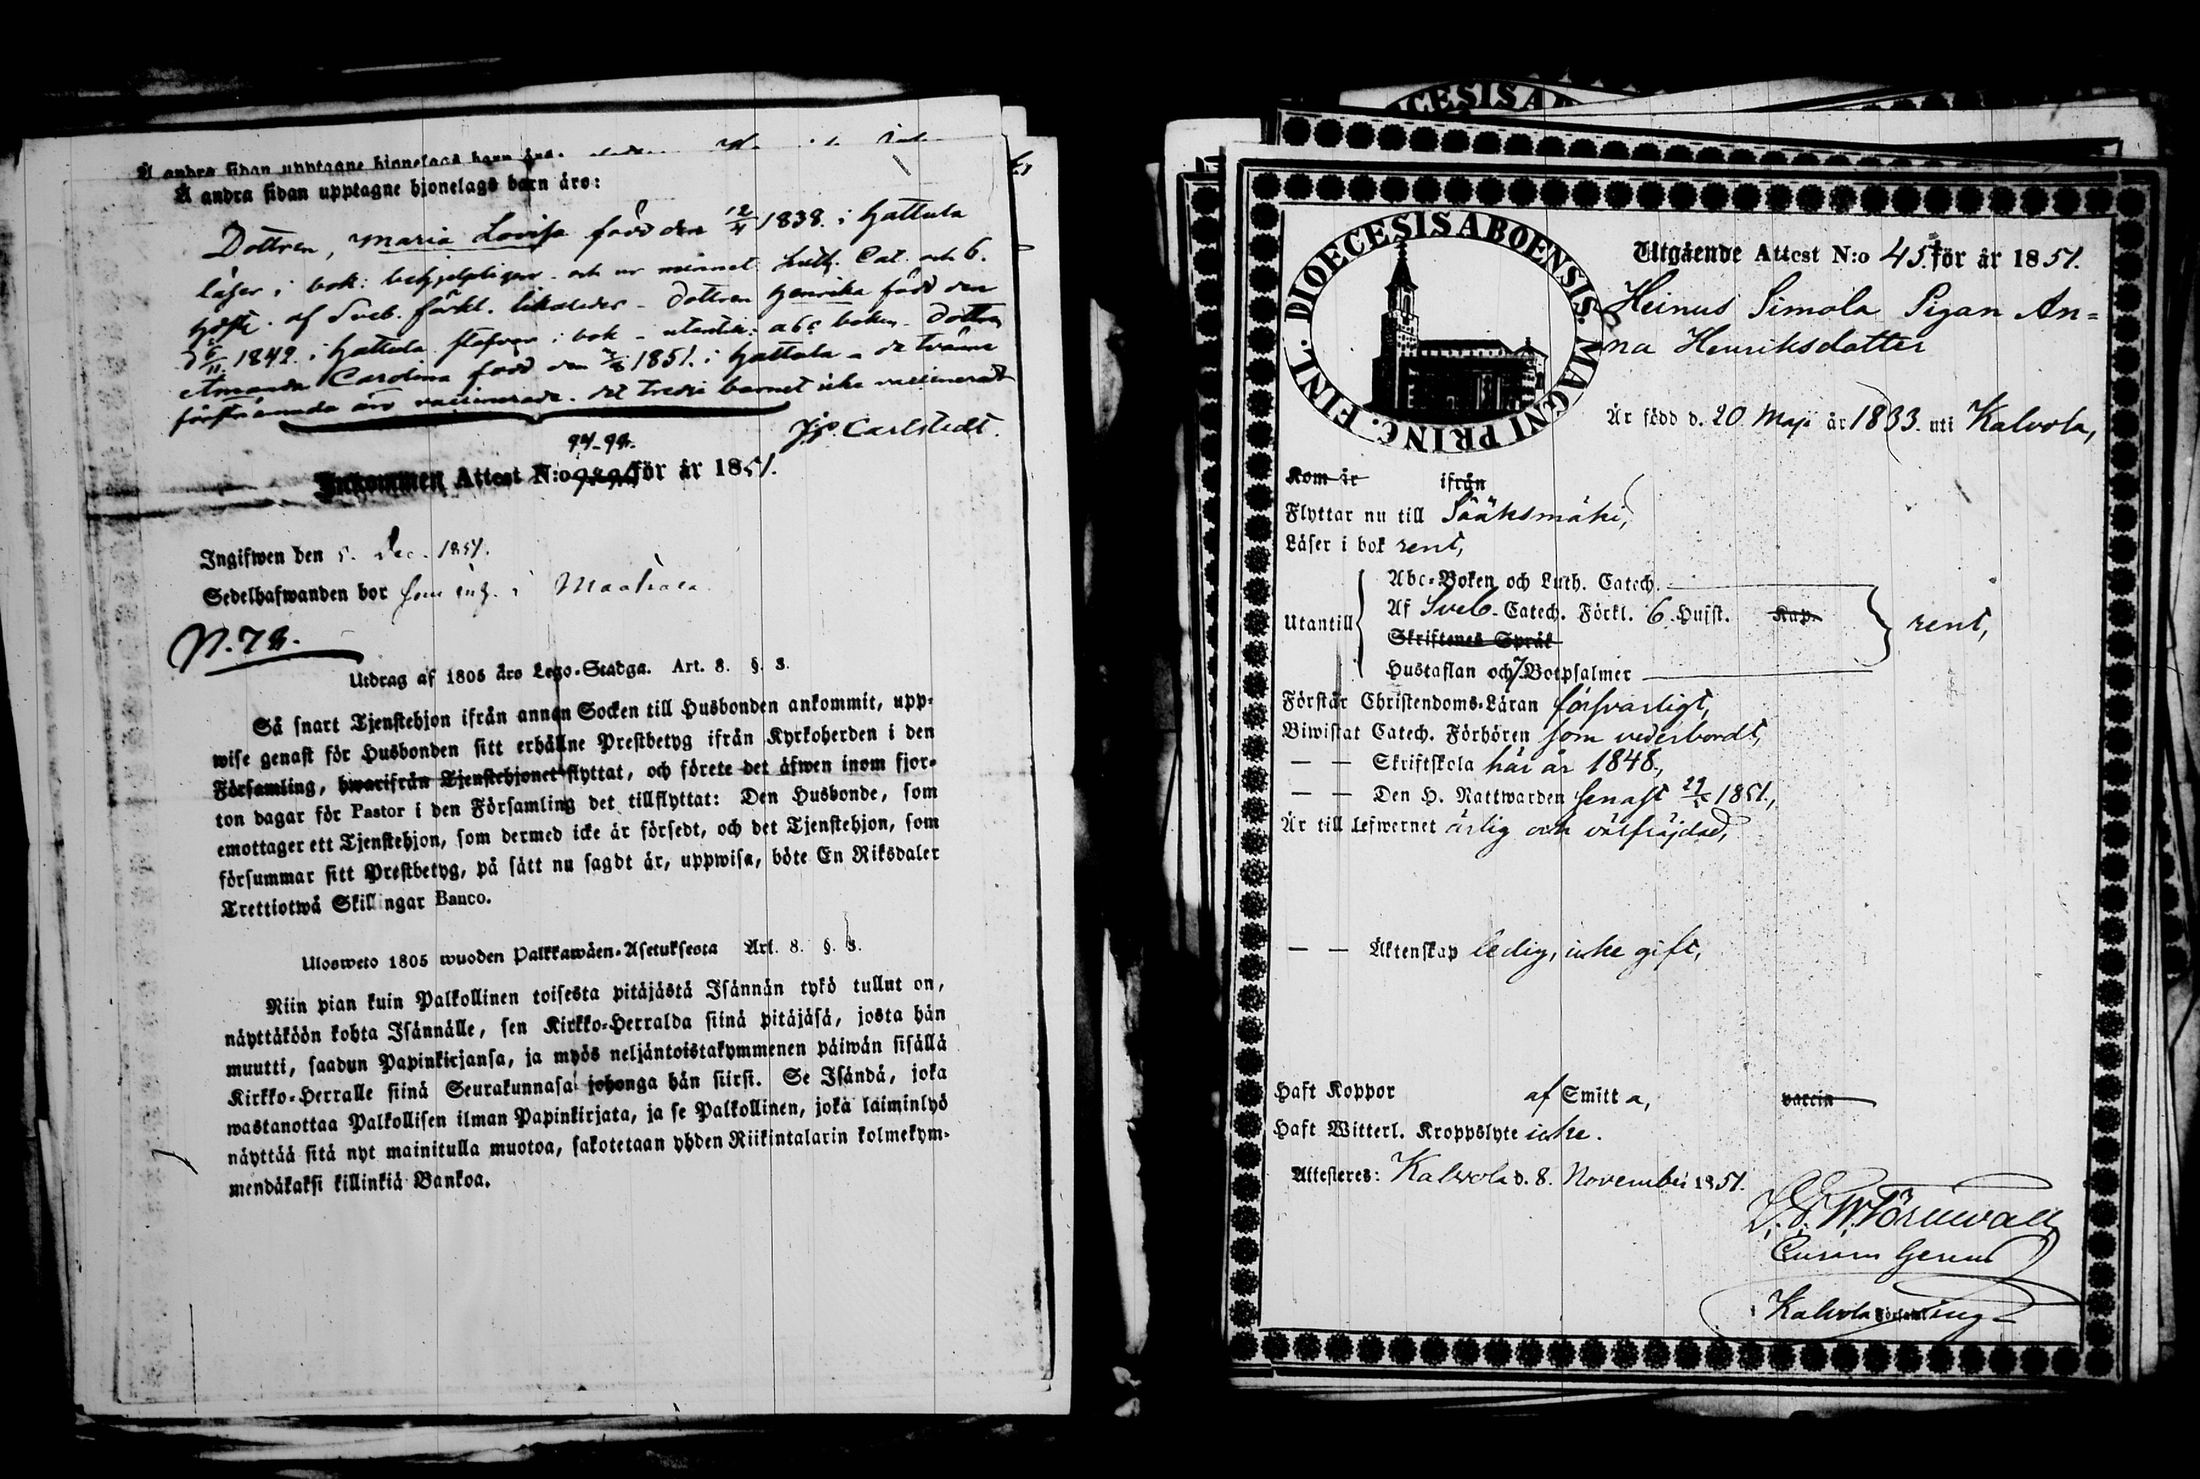 Å andra sidan upptagne hjonelags barn äro:
Å andra sidan upptagne hjonelags barn äro:
Dottren, Maria Lovisa född den 12/4 1838. i Hattula
läser i bok: behjelpligen och ur minnet Luth. Cat. och 6.
Hofst. af Sveb. förkl. likaledes - Dottren Henrika född den
6/11 1842. i Hattula stafvar i bok - utantill: abc boken - Dottren
Amanda Carolina född den 1851. i Hattula - de tvänne
förstnämnda äro vaccinerade. det tredie barnet icke vaccineradt
Carlstedt.
94-98.
Inkommen Attest N:o för år 1851.
Ingifwen den 5. Dec. 1851.
Sedelhafwanden bor som inh. i
N. 78.
Utdrag af 1805 års Lego-Stadga. Art. 8. §. 3.
Så snart Tjenstehjon ifrån annan Socken till Husbonden ankommit, upp-
wise genast för Husbonden sitt erhållne Prestbetyg ifrån Kyrkoherden i den
Församling, hwarifrån Tjenstehjonet flyttat, och förete det äfwen inom fjor-
ton dagar för Pastor i den Församling det tillflyttat: Den Husbonde, som
emottager ett Tjenstehjon, som dermed icke är försedt, och det Tjenstehjon, som
försummar sitt Prestbetyg, på sätt nu sagdt är, uppwisa, böte En Riksdaler
Trettiotwå Skillingar Banco.
Ulosweto 1805 wuoden Palkkawäen-Asetuksesta Art. 8. §. 3.
Niin pian kuin Palkollinen toisesta pitäjästä Isännän tykö tullut on,
näyttäköön kohta Isännälle, sen Kirkko-Herralda siinä pitäjäsä, josta hän
muutti, saadun Papinkirjansa, ja myös neljäntoistakymmenen päiwän sisällä
Kirkko-Herralle siinä Seurakunnasa johonga hän siirsi. Se Isändä, joka
wastanottaa Palkollisen ilman Papinkirjata, ja se Palkollinen, joka laiminlyö
näyttää sitä nyt mainitulla muotoa, sakotetaan yhden Riikintalarin kolmekym-
mendäkaksi killinkiä Bankoa.
DIOECESIS ABOENSIS. MAGNI PRINC. FINL.
Utgående Attest N:o 45. för år 1851.
Heinus Simola Pigan An-
na Henriksdotter
Är född d. 20 Maji år 1833. uti Kalvola,
Kom år ifrån
Flyttar nu till Sääksmäki,
Läser i bok rent,
Utantill
Abc-Boken och Luth. Catech.
Af Sveb. Catech. Förkl. 6 Husst. Kap.
Skriftenes Språk
Hustaflan och 7 Botpsalmer
rent,
Förstår Christendoms-Läran försvarligt,
Biwistat Catech. Förhören som vederbordt,
— — Skriftskola här år 1848,
— — Den H. Nattwarden senast 1851.,
Är till lefwernet ärlig och välfräjdad,
— — Äktenskap ledig, icke gift,
Haft Koppor af Smitta, vaccin
Haft Witterl. Kroppslyte icke.
Attesteres: Kalvola d. 8. November 1851.
Törnwall
Kalvola Församling